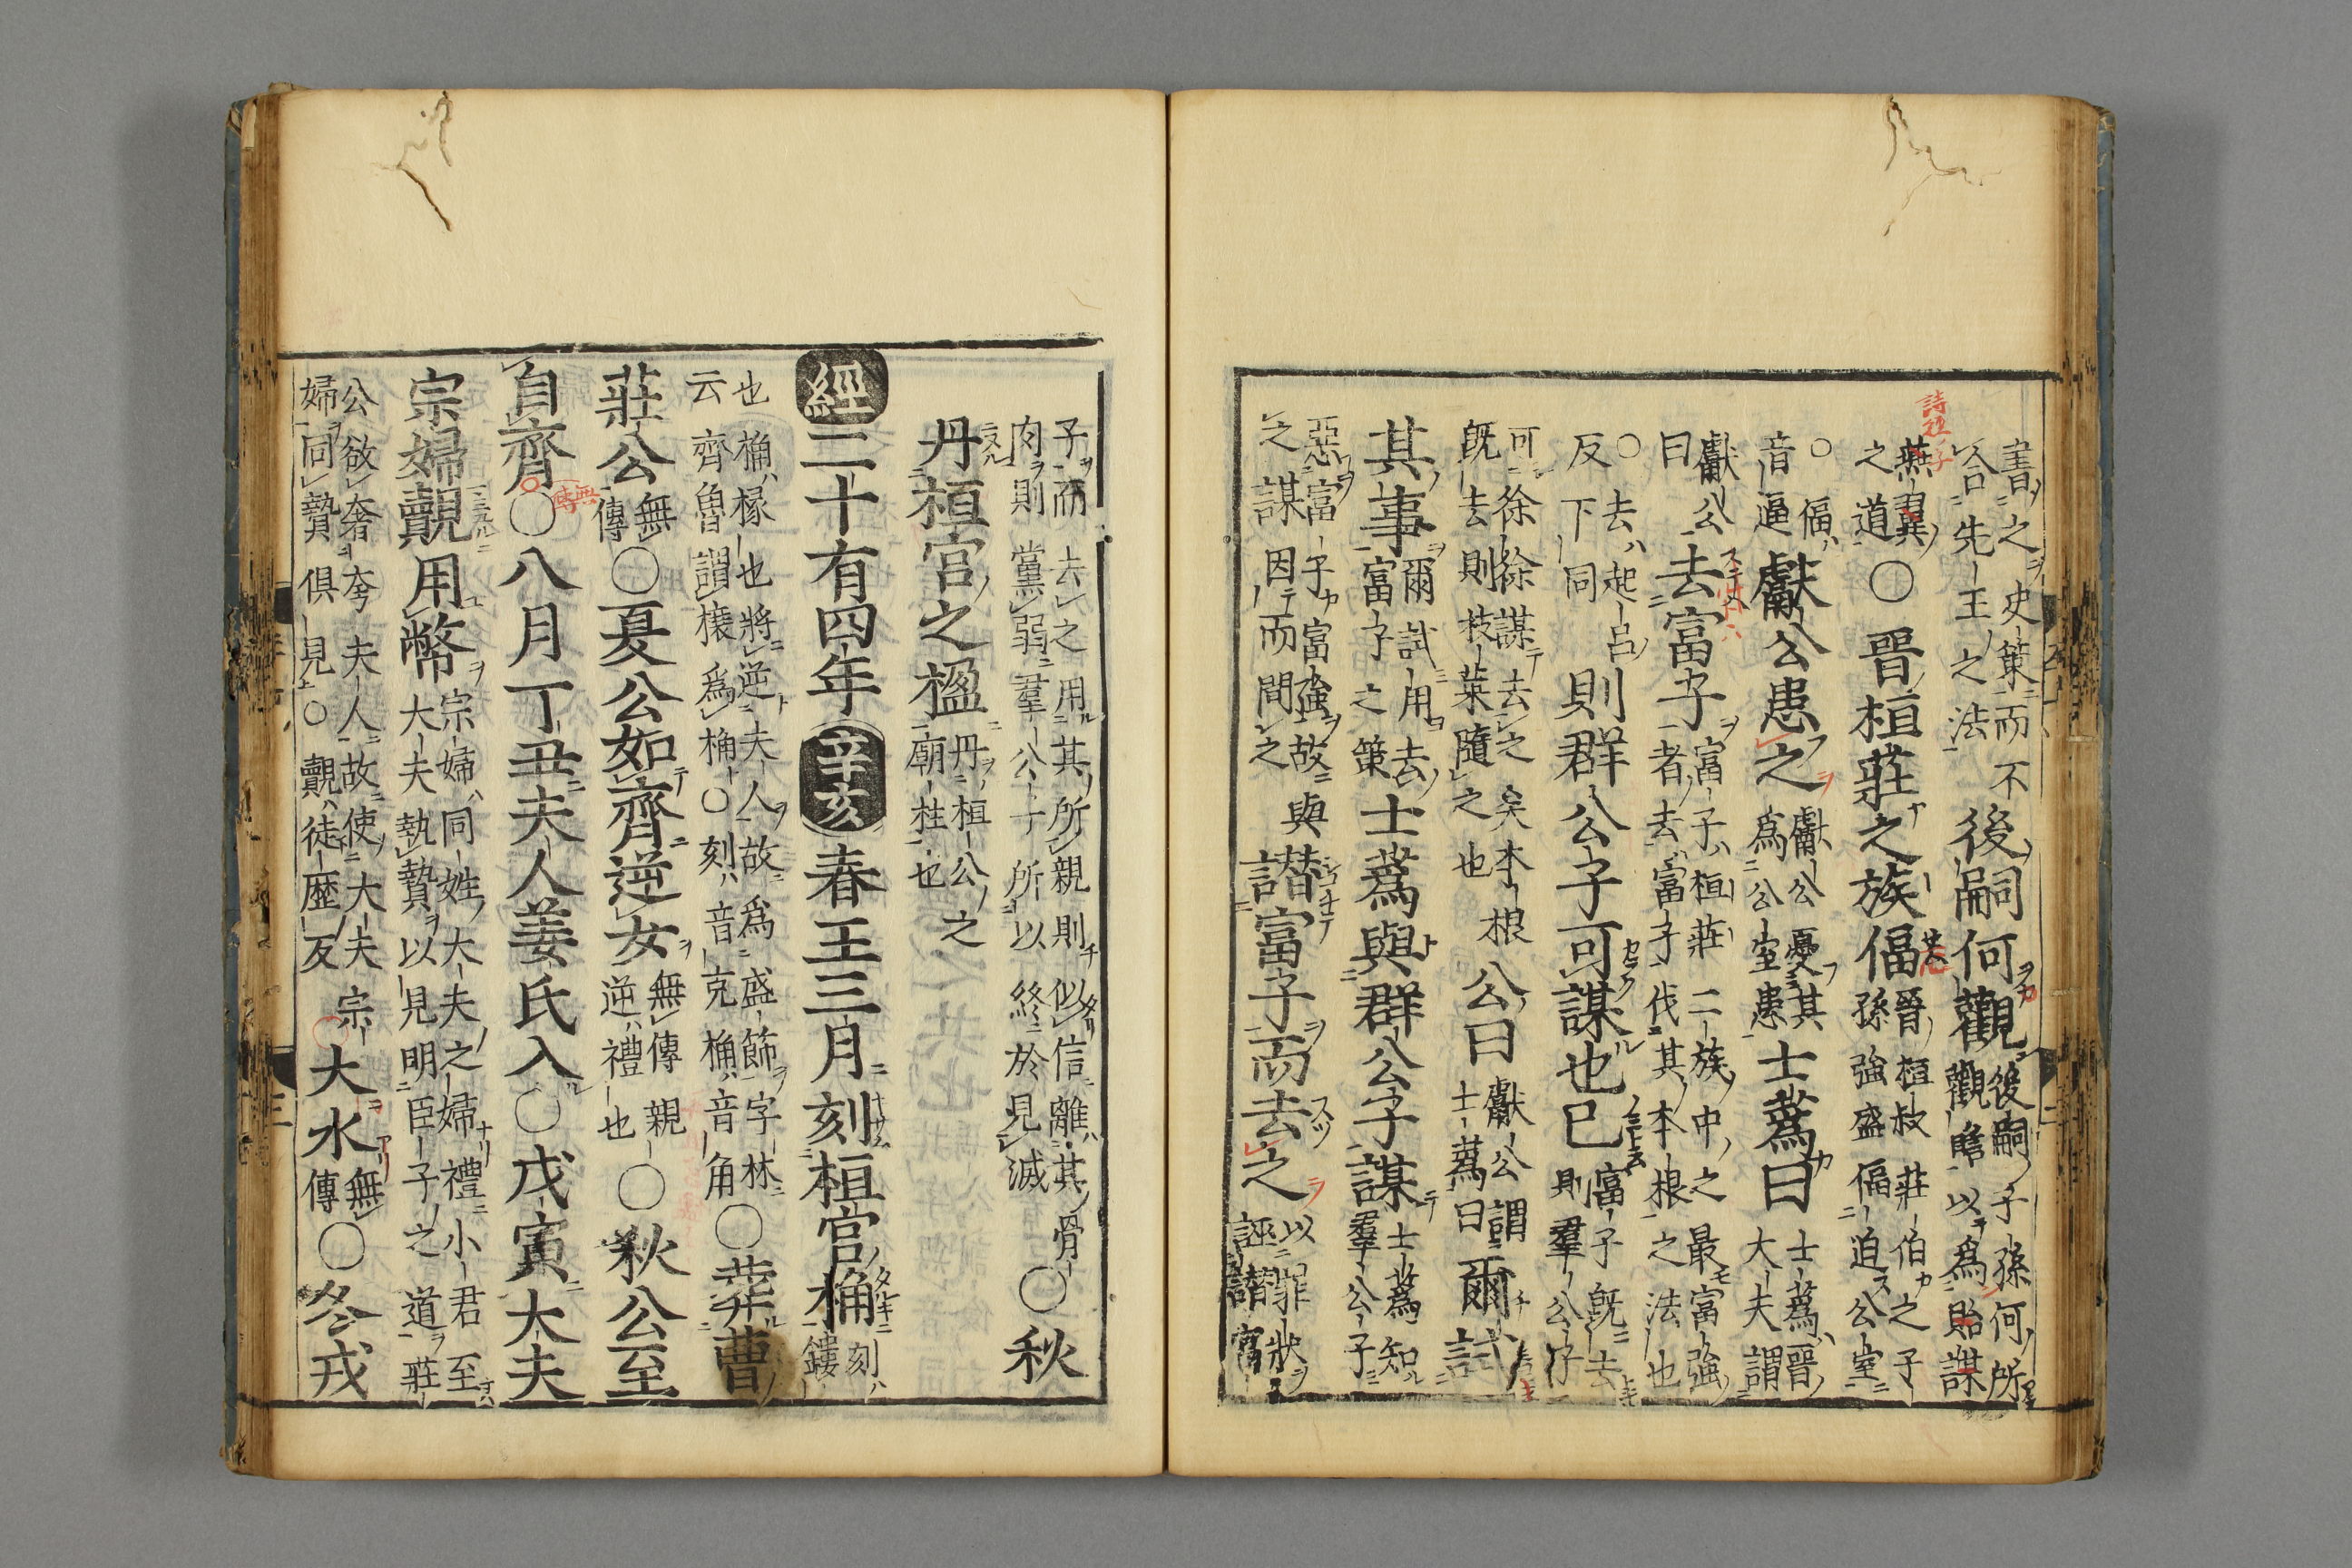 書之史策而不
合先王之法
後嗣何觀
後嗣子孫何所
觀瞻以爲貽謀
燕翼
之道
○晉桓莊之族偪
晉桓叔莊伯之子
孫強盛偪迫公室
○偪
音逼
獻公患之
獻公憂其
爲公室患
士蒍曰
士蒍晉
大夫謂
獻公
曰
去富子
富子桓莊二族中之最富強
者去富子伐其本根之法也
○去起呂
反下同
則群公子可謀也已
富子旣去
則羣公子
可徐徐謀去之矣本根
旣去則枝葉隨之也
公曰
獻公謂
士蒍曰
爾試
其事
爾試用去
富子之策
士蒍與群公子謀
士蒍知
羣公子
惡富子富強故與
之謀因而間之
譖富子而去之
以罪狀
誣譖富
子而去之用其所親則似信離其骨
肉則黨弱羣公子所以終於見滅
○秋
丹桓宮之楹
丹桓公之
廟柱也
經二十有四年辛亥春王三月刻桓宮桷
刻
鏤
也桷椽也將逆夫人故爲盛飾字林
云齊魯謂榱爲桷○刻音克桷音角
○葬曹
莊公
無
傳
○夏公如齊逆女
無傳親
逆禮也
○秋公至
自齊○八月丁丑夫人姜氏入○戊寅大夫
無傳
宗婦覿用幣
宗婦同姓大夫之婦禮小君至
大夫執贄以見明臣子之道莊
公欲奢夸夫人故使大夫宗
婦同贄俱見○覿徒歷反
大水
無
傳
○冬戎